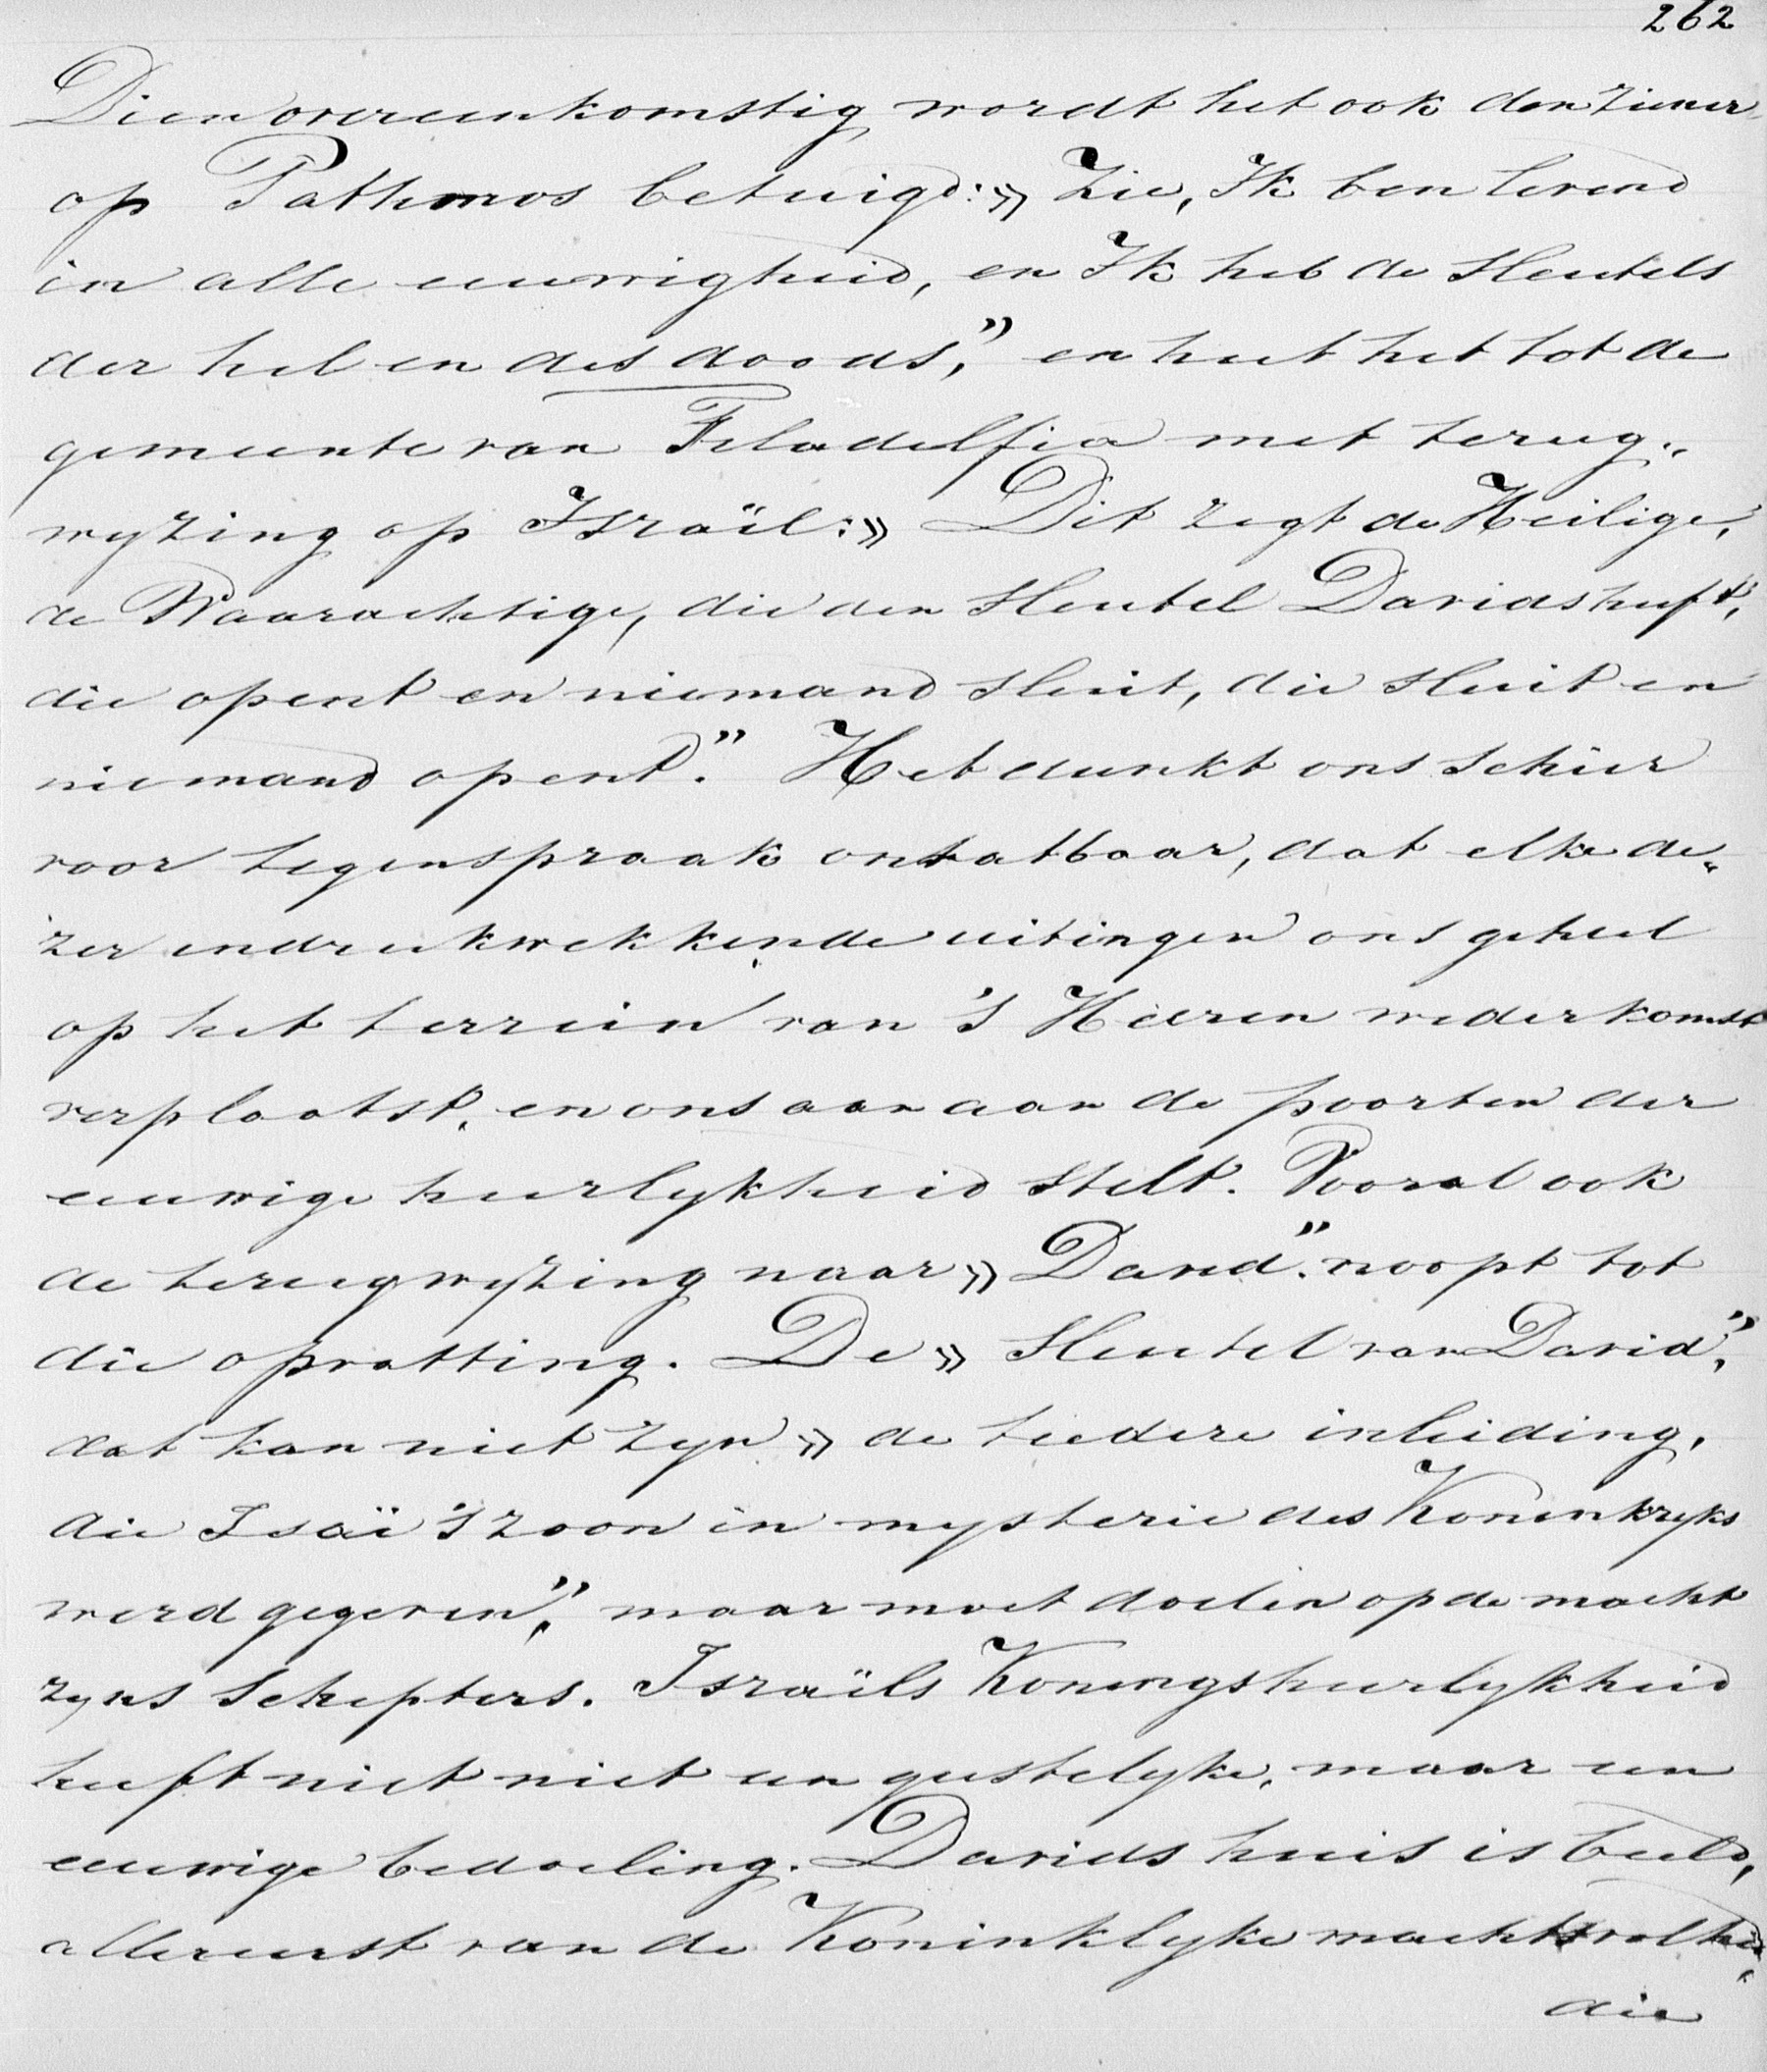 262
Dienovereenkomstig wordt het ook den Ziener
op Pathmos betuigd: » Zie, Ik ben levend
in alle eeuwigheid, en Ik heb de sleutels
der hel en des doods," en heet het tot de
gemeente van Filadelfia met terug„
wyzing op Israël: » Dit zegt de Heilige,
de Waarachtige, die den sleutel Davids heeft,
die opent en niemand sluit, die sluit en
niemand opent." Het dunkt ons schier
voor tegenspraak onvatbaar, dat elke de„
zer indrukwekkende uitingen ons geheel
op het terrein van 's Heeren wederkomst
verplaatst, en ons aan aan de poorten der
eeuwige heerlykheid stelt. Vooral ook
de terugwyzing naar » David" noopt tot
die opvatting. De » sleutel van David",
dat kan niet zyn » de teedere inleiding,
die Isaï's zoon in mysterie des Koninkryks
werd gegeven", maar moet doelen op de macht
zyns schepters. Israëls Koningsheerlykheid
heeft niet niet een geestelyke, maar een
eeuwige bedoeling. Davids huis is beeld,
allereerst van de Koninklyke machtsvolheid,
die